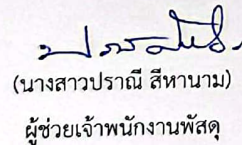 (นางสาวปราณี สีหานาม)
ผู้ช่วยเจ้าพนักงานพัสดุ